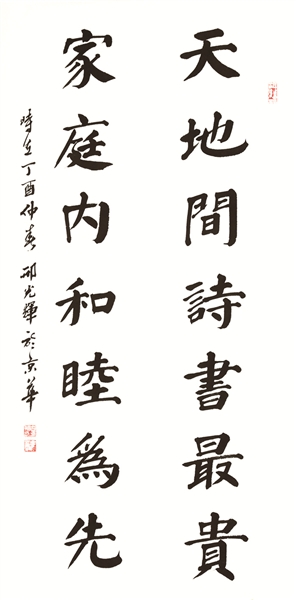 天地間詩書最貴
家庭内和睦為先
時在丁酉仲春邢光輝於京華